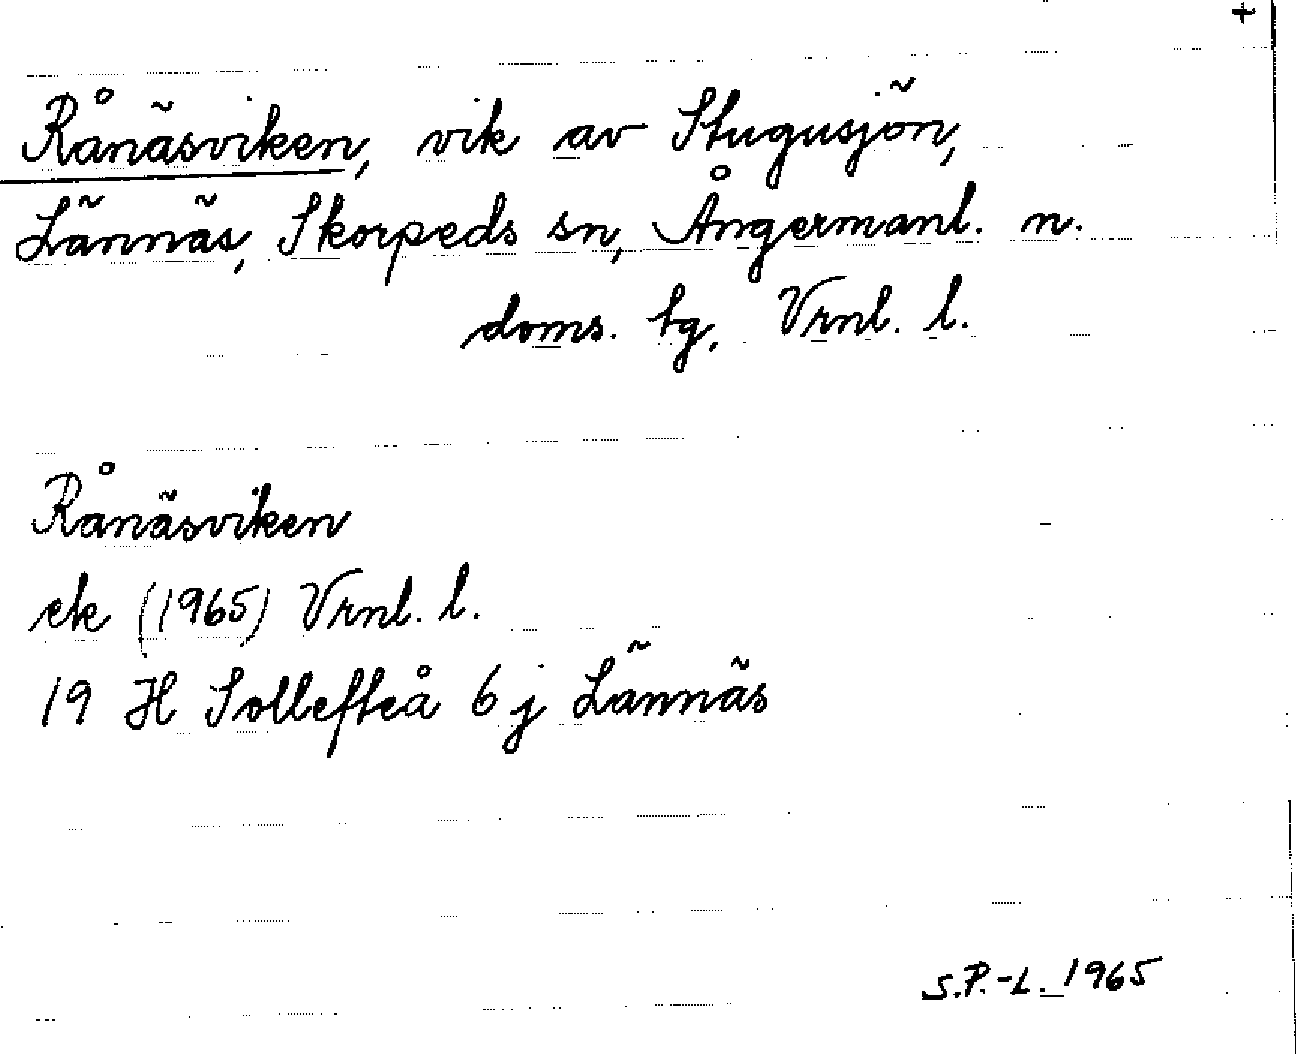 +
Rånäsviken, vik av Stugusjön,
Lännäs, Skorpeds sn, Ångermanl. n.
doms. tg, Vrnl. l.
Rånäsviken
ek (1965) Vrnl. l.
19 H Sollefteå 6 j Lännäs
S.P.-L. 1965